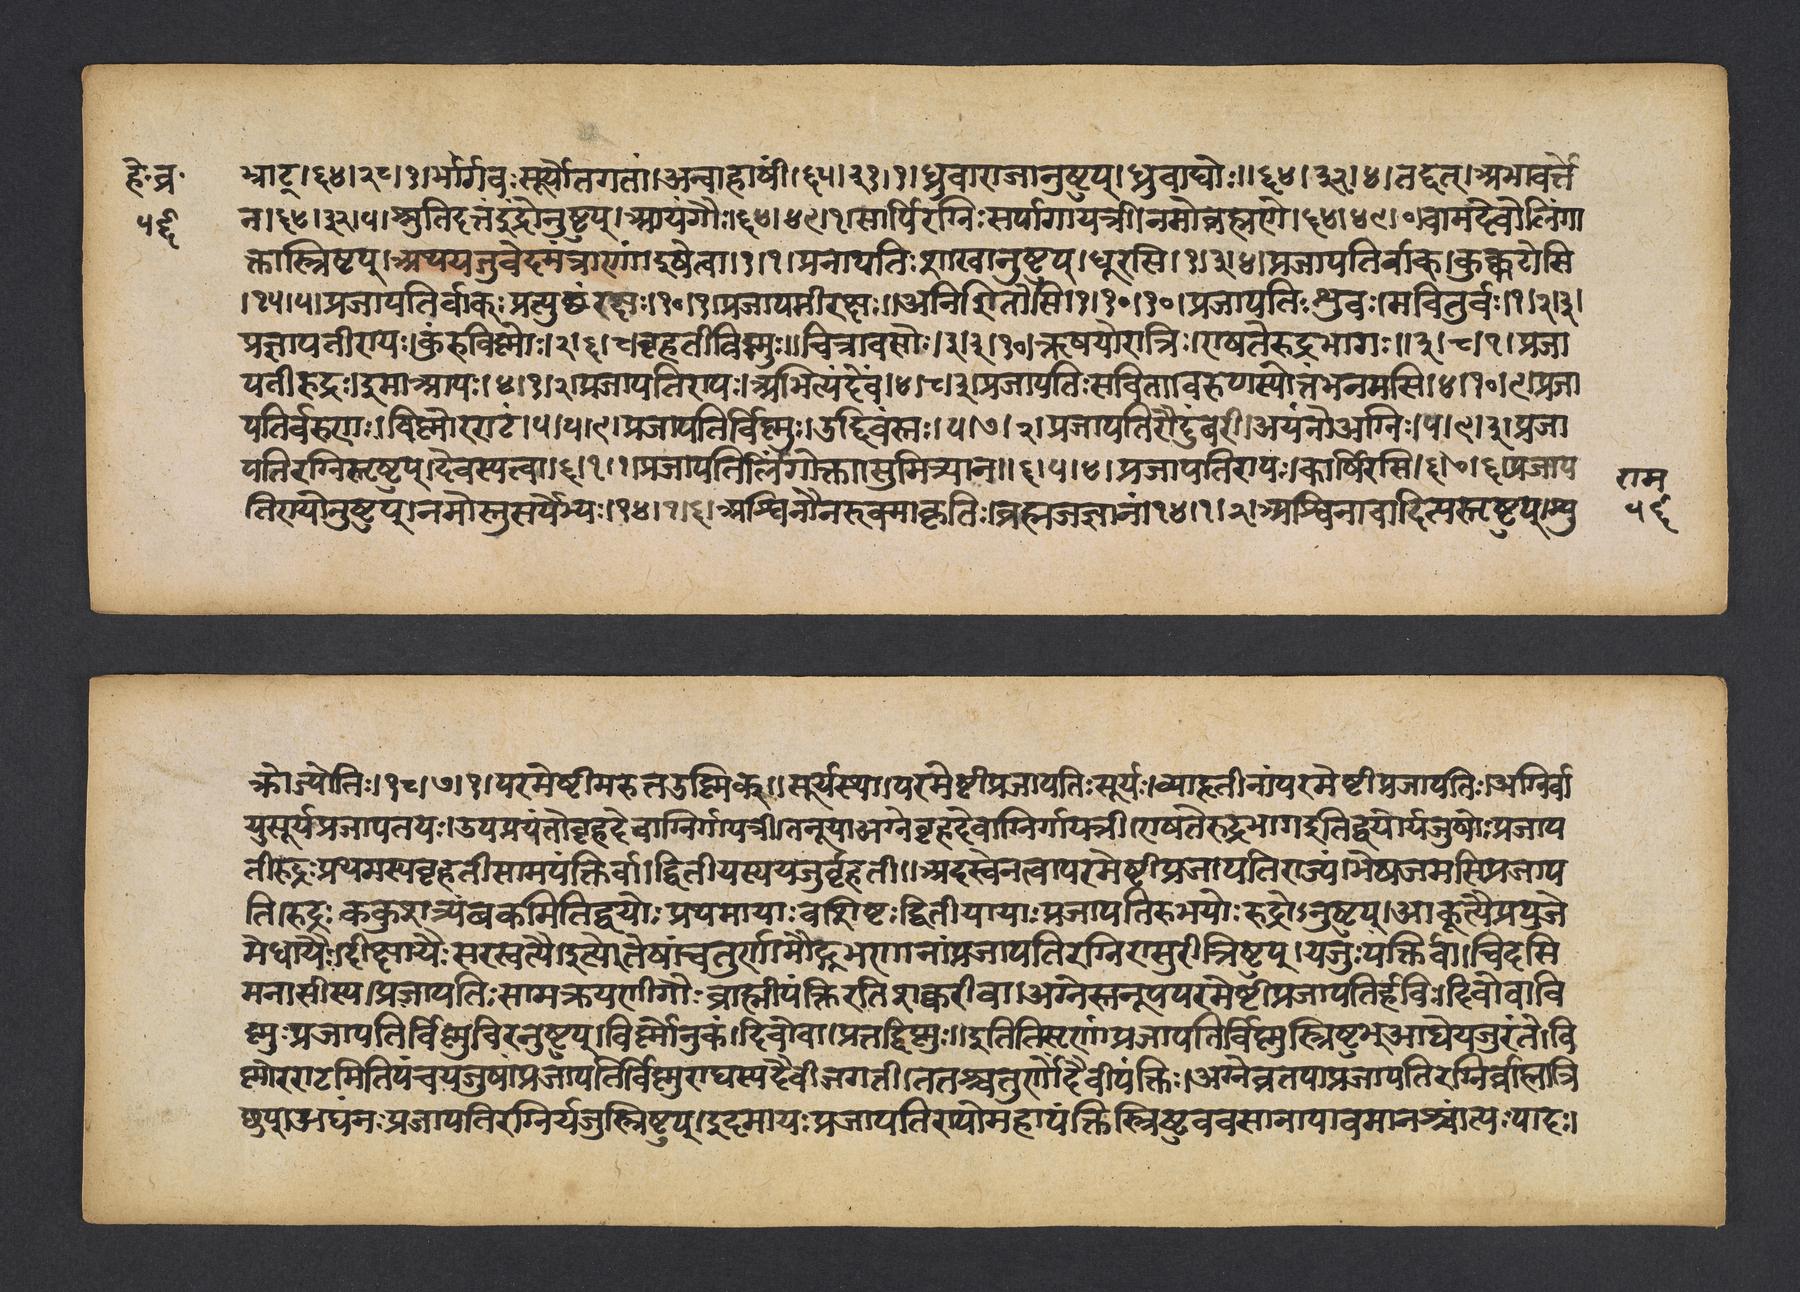 हे॰व्र॰
५६
भ्राट्।६४।२८।१।भार्गवःसूर्यातगता।अन्वाहार्षी।६५।२१।१।ध्रुवाराजानुष्टुप्।ध्रुवाद्यौः॥६४।३२।४।तद्वत्।अभावर्त्ते
न।६४।३२।५।स्तुतिदत्तइंद्रोनुष्टुप्।आयंगौः।६४।४९।१।सार्पिरग्निःसर्पागायत्री।नमोब्रह्मणे।६४।४९।०।वामदेवोलिंगो
क्तास्त्रिष्टुप्।अथयजुर्वेदमंत्राणां।इषेत्वा।१।१।प्रजापतिःशाखानुष्टुप्।धूरसि।१।३।४।प्रजापतिर्वाक्।कुक्कुटोसि
।१५।५।प्रजापतिर्वाक्।प्रत्युष्टंरक्षः।१०।१।प्रजापमीरक्षः॥अनिशितोसि।१।१०।१०।प्रजापतिःश्रुवः।सवितुर्वः।१।२।३।
प्रजापतीरायः।कुंरुविष्णोः।२।६।८।बृहतीविष्णुः॥चित्रावसोः।३।३।१०।ऋषयोरात्रिः।एषतेरुद्रभागः॥३।८।१।प्रजा
पतीरुद्रः।इमाआपः।४।१।२।प्रजापतिरापः।अभित्यंदेवं।४।८।३।प्रजापतिःसविता।वरुणस्योत्तंभनमसि।४।१०।९।प्रजा
पतिर्वरुणः।विष्णोरराटं।५।५।९।प्रजापतिर्विष्णुः।उद्दिवंस्त।५।७।२।प्रजापतिरौदुंबरी।अयंनोअग्निः।५।९।३।प्रजा
पतिरग्निस्त्रिष्टुप्।देवस्यत्वा।६।१।१।प्रजापतिर्लिंगोक्ता।सुमित्र्यान॥६।५।४।प्रजापतिरापः।कार्षिरसि।६।०।६।प्रजाप
तिरापोनुष्टुप्।नमोस्तुसर्पेभ्यः।१४।१।६।अश्विनौनरुक्माकृतिः।ब्रह्मजज्ञानं।१४।१।२।अश्विनावादित्यस्त्रिष्टुप्।शु
राम
५६
क्रोज्योतिः।१८।७।१।परमेष्टीमरुतउष्णिक्॥सूर्यस्या।परमेष्टीप्रजापतिःसूर्यः।व्याहृतीनांपरमेष्टीप्रजापतिः।अग्निर्वा
युसूर्यप्रजापतयः।उपप्रयंतोबृहद्देवाग्निर्गायत्री।तनूपाअग्नेबृहद्देवाग्निर्गायत्री।एषतेरुद्रभागइतिद्वयोर्यजुषोःप्रजाप
तीरुद्रःप्रथमस्यबृहतीसामपक्तिर्वा।द्वितीयस्ययजुर्बृहती॥अदस्वेनत्वापरमेष्टीप्रजापतिराज्यं।भेषजमसिप्रजाप
ति।रुद्रःककुप्।त्र्यंबकमितिद्वयोःप्रथमायाःवशिष्टःद्वितीयायाःप्रजापतिरुभयोःरुद्रोऽनुष्टुप्।आकूत्यैप्रयुजे
मेधायै।दीक्षायैःसरस्वत्यै।इत्येतेषांचतुर्णामौद्गृभणानांप्रजापतिरग्निरासुरीत्रिष्टुप्।यजुःपंक्तिर्वा।चिदसि
मनासीस्य।प्रजापतिःसामक्रयणीगौःब्राह्मीपंक्तिरतिशक्वरीवा।अग्नेस्तनूपपरमेष्टीप्रजापतिर्हविः।दिवोवावि
ष्णुःप्रजापतिर्विष्णुविरनुष्टुप्।विर्ष्णोनुकं।दिवोवा।प्रतद्विष्णुः॥इतितिसृणांप्रजापतिर्विष्णुस्त्रिष्टुभ्आद्येयजुरंते।वि
ष्णोरराटमितिपंचयजुषांप्रजापतिर्विष्णुराद्यस्यदैवीजगती।ततश्चतुर्णांदैवीपंक्तिः।अग्नेव्रतपाप्रजापतिरग्निर्ब्राह्मीत्रि
ष्टुप्।अयंनःप्रजापतिरग्निर्यजुस्त्रिष्टुप्।इदमायःप्रजापतिरापोमहापंक्तिस्त्रिष्टुबवसानापावमानश्चांत्यःपादः।